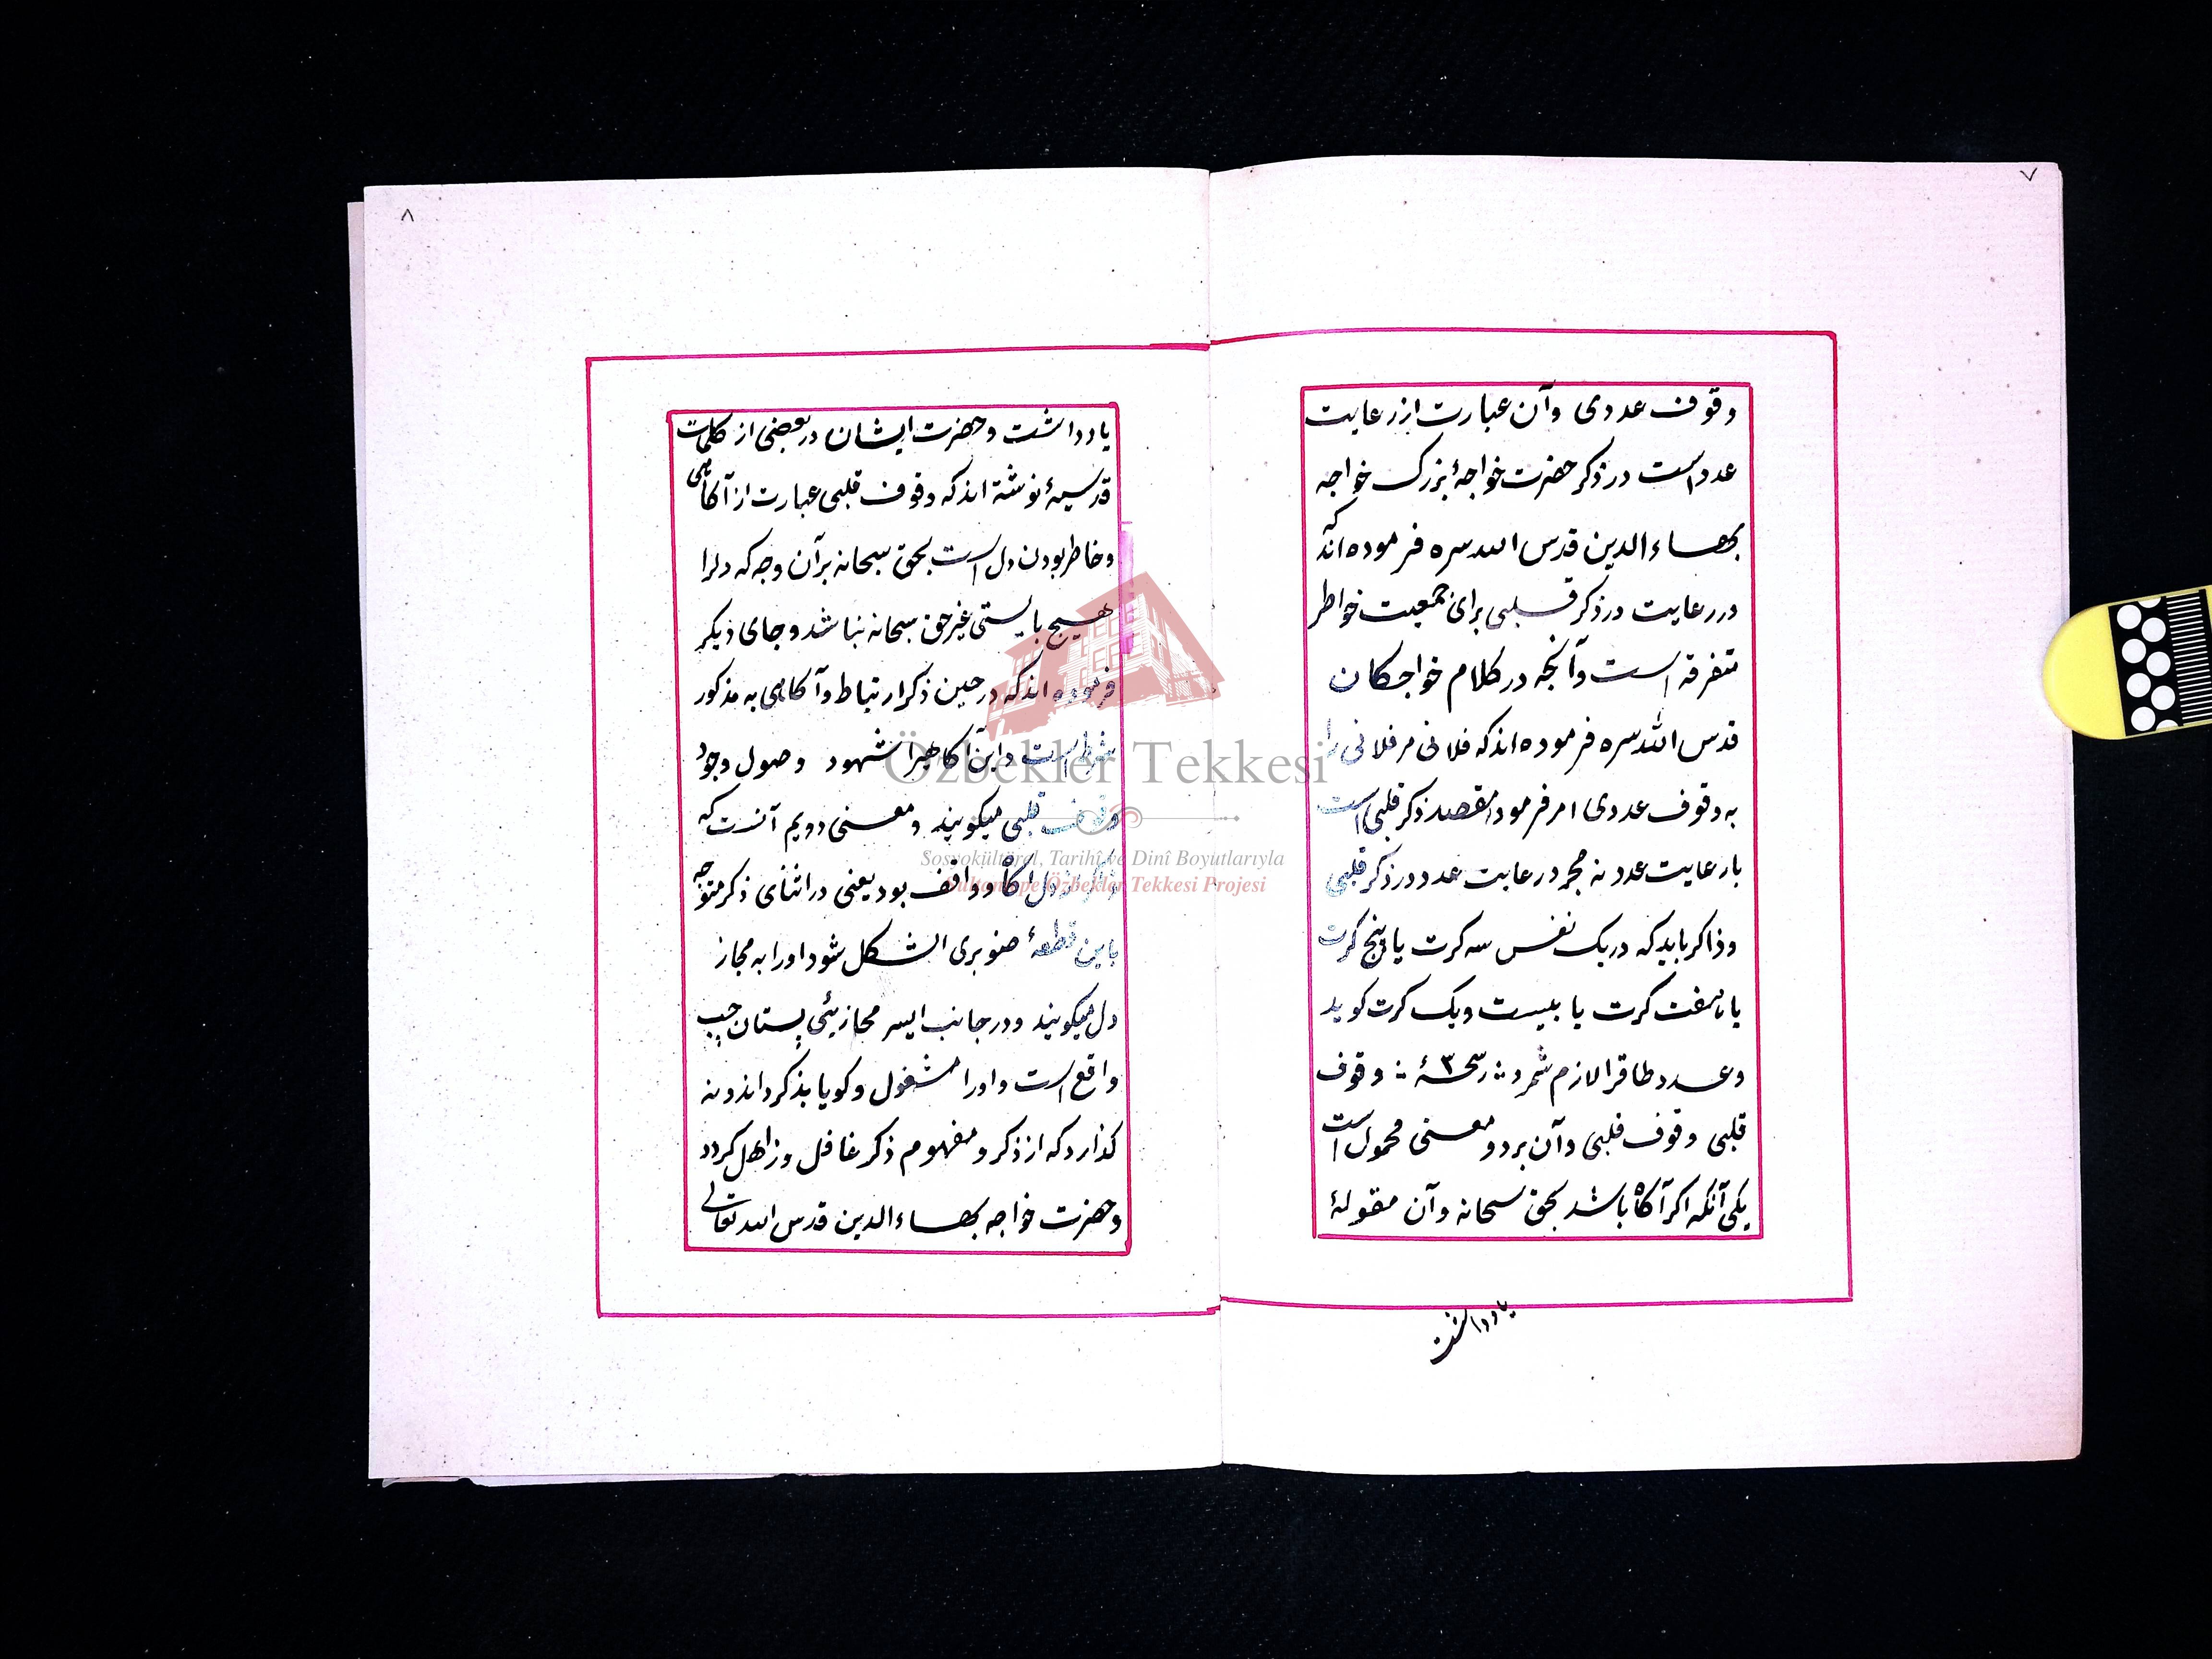 ٧
وقوف عددی وآن عبارت از رعایت
عدداست در ذکر حضرت خواجهٔ بزرک خواجه
بهاءالدین قدس الله سره فرموده اند که
در رعایت در ذکر قلبی برای جمعیت خواطر
متفرقه است وآنچه در کلام خواجکان
قدس الله سره فرموده اند که فلانی مر فلانی را
به وقوف عددی امر فرمود مقصد ذکر قلبی است
با رعایت عدد نه مجرد رعایت عدد در ذکر قلبی
وذاکر باید که در یک نفس سه کرت یا پنج کرت
یا هفت کرت یا بیست ویک کرت کوید
وعدد طاقرا لازم شمرد ∴ رسحهٔ ٣ ∴ وقوف
قلبی وقوف قلبی وآن بر دو معنی محمول است
یکی آنکه اکر آکاه باشد بحق سبحانه وآن مقولهٔ
یادداشت
٨
یادداشت وحضرت ایشان در بعضی از کلمات
قدسیهٔ نوشته اند که وقوف قلبی عبارت از آکاهی
وخاطر بودن دل است بحق سبحانه برآن وجه که دلرا
هیچ بایستی غیر حق سبحانه نباشد وجای دیکر
فرموده اند که در حین ذکر ارتباط وآکاهی به مذکور
شرط است واین آکاهیرا شهود وصول وجود
وقوف قلبی میکویند ومعنی دویم آنست که
ذاکر از دل آکاه وواقف بود یعنی در اثنای ذکر متوجه
باین قطعهٔ صنوبری الشکل شود اورا به مجاز
دل میکویند ودر جانب ایسر محازیئی پستان چپ
واقع است واورا مشغول وکویا بذکر داند ونه
کذارد که از ذکر ومفهوم ذکر غافل وزاهل کردد
وحضرت خواجه بهاءالدین قدس الله تعالی
Özbekler Tekkesi
Sosyokültürel, Tarihî ve Dinî Boyutlarıyla
Sultantepe Özbekler Tekkesi Projesi